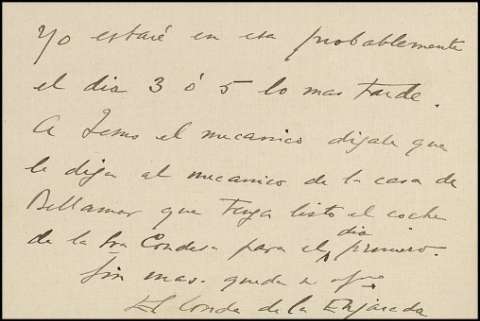 Yo estaré en esa probablemente
el dia 3 ó 5 lo mas tarde.
A el mecanico digale que
le diga al mecanico de la casa de
Bellamar que tenga listo el coche
de la Sra Condesa para el dia primero.
Sin mas queda su
El Conde de la